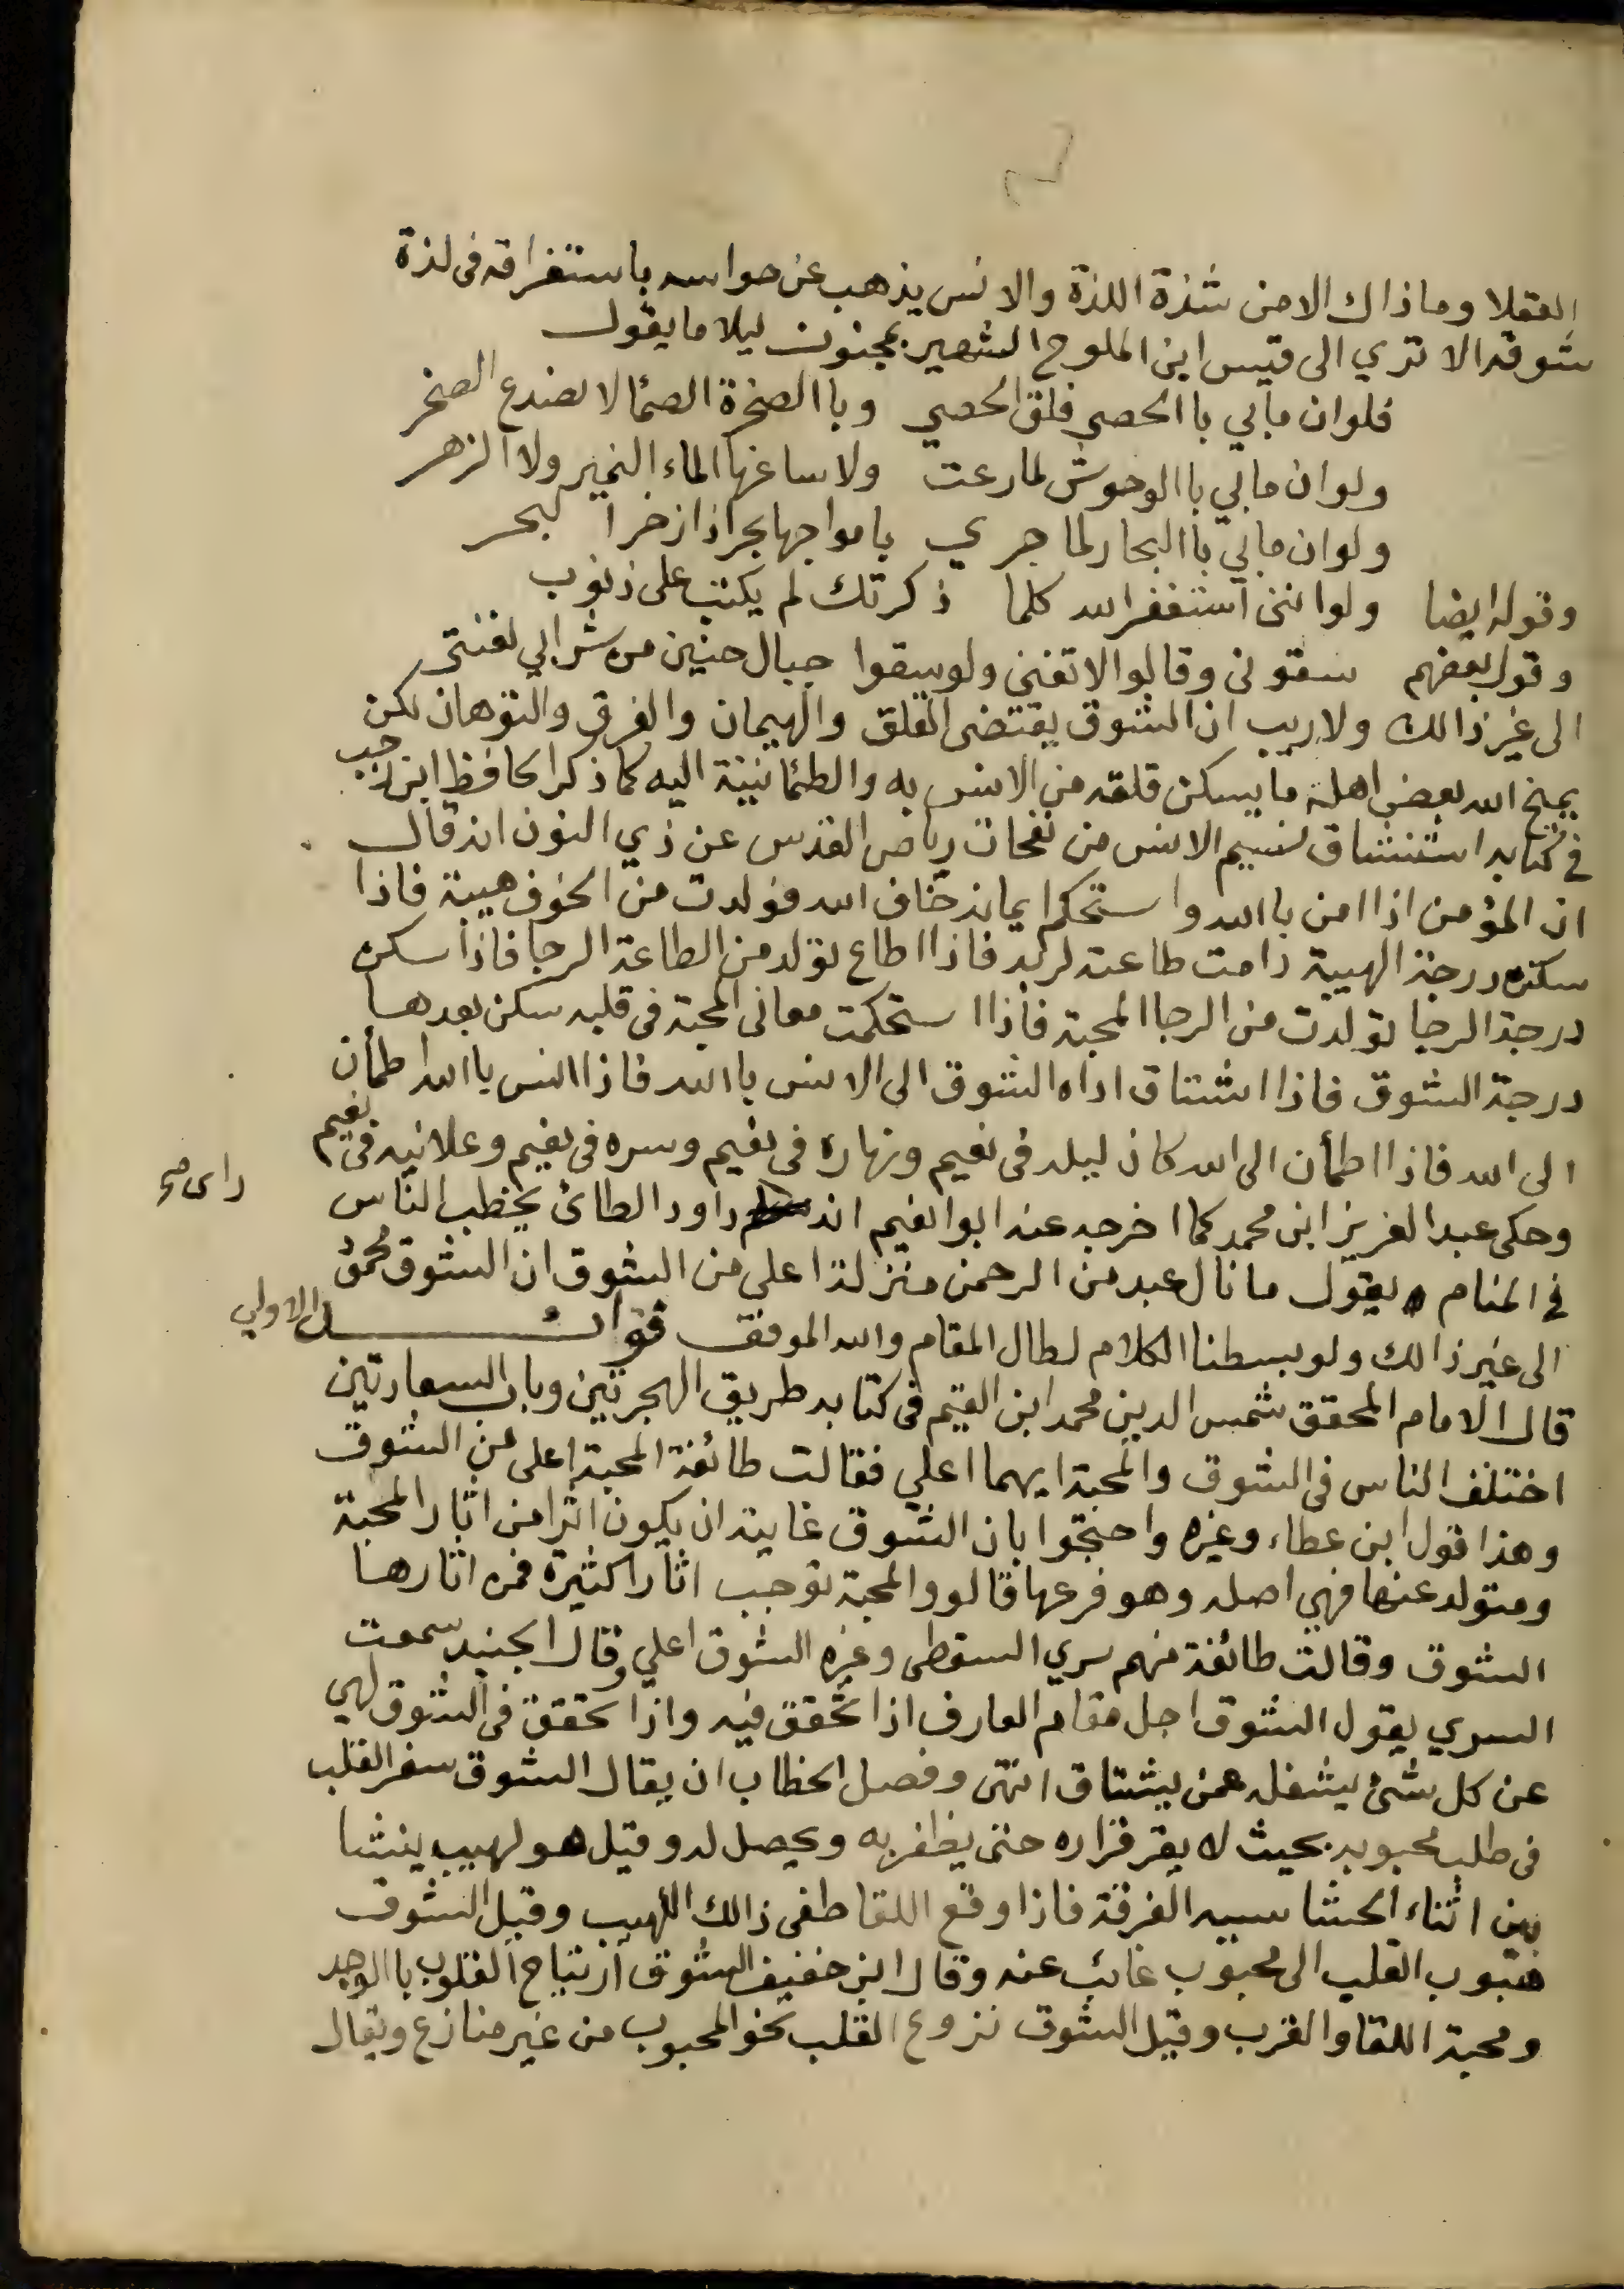 العقلا وماذاك الامن شذة اللذة والانس يذهب عن حواسه باستغراقه فى لذة
شوقه الا تري الى قيس ابن الملوح الشهير بمجنون ليلا ما يقول
فلوان مابي باالحصى فلق الحصي وباالصخرة الصمٔا لا نصدع الصخر
ولوان مابي باالوحوش لما رعت ولا ساغها الماء النمير ولا الزهر
ولوان مابي باالبحار لما جري بامواجها بحر اذا زخر البحر
وقوله ايضا ولواننى استغفر الله كلما ذكرتك لم يكتب على ذنوب
وقول بعضهم سقونى وقالوا لاتغنى ولو سقوا جبال حنين من شرابي لغنتى
الى غير ذالك ولاريب ان الشوق يقتضى القلق والهيمان والفرق والتوهان لكن
يمنح الله بعض اهله ما يسكن قلقه من الانس به والطمٔانينة اليه كما ذكر الحافظ ابن رجب
فى كتابه استنشاق نسيم الانس من نفحات رياض القدس عن ذي النون انه قال
ان المؤمن اذا امن باالله واستحكم ايمانه خاف الله فولدت من الخوف هيبة فاذا
سكنه درجة الهيبة دامت طاعته لربه فاذا اطاع تولد من الطاعة الرجا فاذا سكن
درجة الرجا تولدت من الرجا المحبة فاذا استحكمت معانى المحبة فى قلبه سكن بعدها
درجة الشوق فاذا اشتاق اداه الشوق الى الانس باالله فاذا انس باالله اطمأن
الى الله فاذا اطمأن الى الله كان ليله فى نعيم ونهاره فى نعيم وسره فى نعيم وعلانيه فى نعيم
وحكى عبد العزيز ابن محمد كما اخرجه عنه ابوا نعيم انه داود الطائ يخطب الناس
راى صح
فى المنام يقول ما نال عبد من الرحمن منزلة اعلى من الشوق ان الشوق محمق
الى غير ذالك ولو بسطنا الكلام لطال المقام والله الموفق فوائد الاولى
قال الامام المحقق شمس الدين محمد ابن القيم فى كتابه طريق الهجرتين وباب السعادتين
اختلف الناس فى الشوق والمحبة ايهما اعلي فقالت طائفة المحبة اعلى من الشوق
وهذا قول ابن عطاء وغيره واحتجوا بان الشوق غايته ان يكون اثرا من اثار المحبة
ومتولد عنها فهي اصله وهو فرعها قالوو المحبة توجب اثارا كثيرة فمن اثارها
الشوق وقالت طائفة منهم سري السقطى وغيره الشوق اعلي وقال الجنيد سمعت
السري يقول الشوق اجل مقام العارف اذا تحقق فيه واذا تحقق فى الشوق لهي
عن كل شىٔ يشغله عمن يشتاق انتهى وفصل الخطاب ان يقال الشوق سفر القلب
فى طلب محبوبه بحيث لا يقر قراره حتى يظفر به ويحصل له وقيل هو لهيب ينشا
بين اثناء الحشا سببه الفرقة فاذا وقع اللقا طفى ذالك اللهيب وقيل الشوق
هبوب القلب الى محبوب غائب عنه وقال ابن خفيف الشوق ارتياح القلوب باالوجد
ومحبة اللقا والقرب وقيل الشوق نزوع القلب نحو المحبوب من غير منازع ويقال